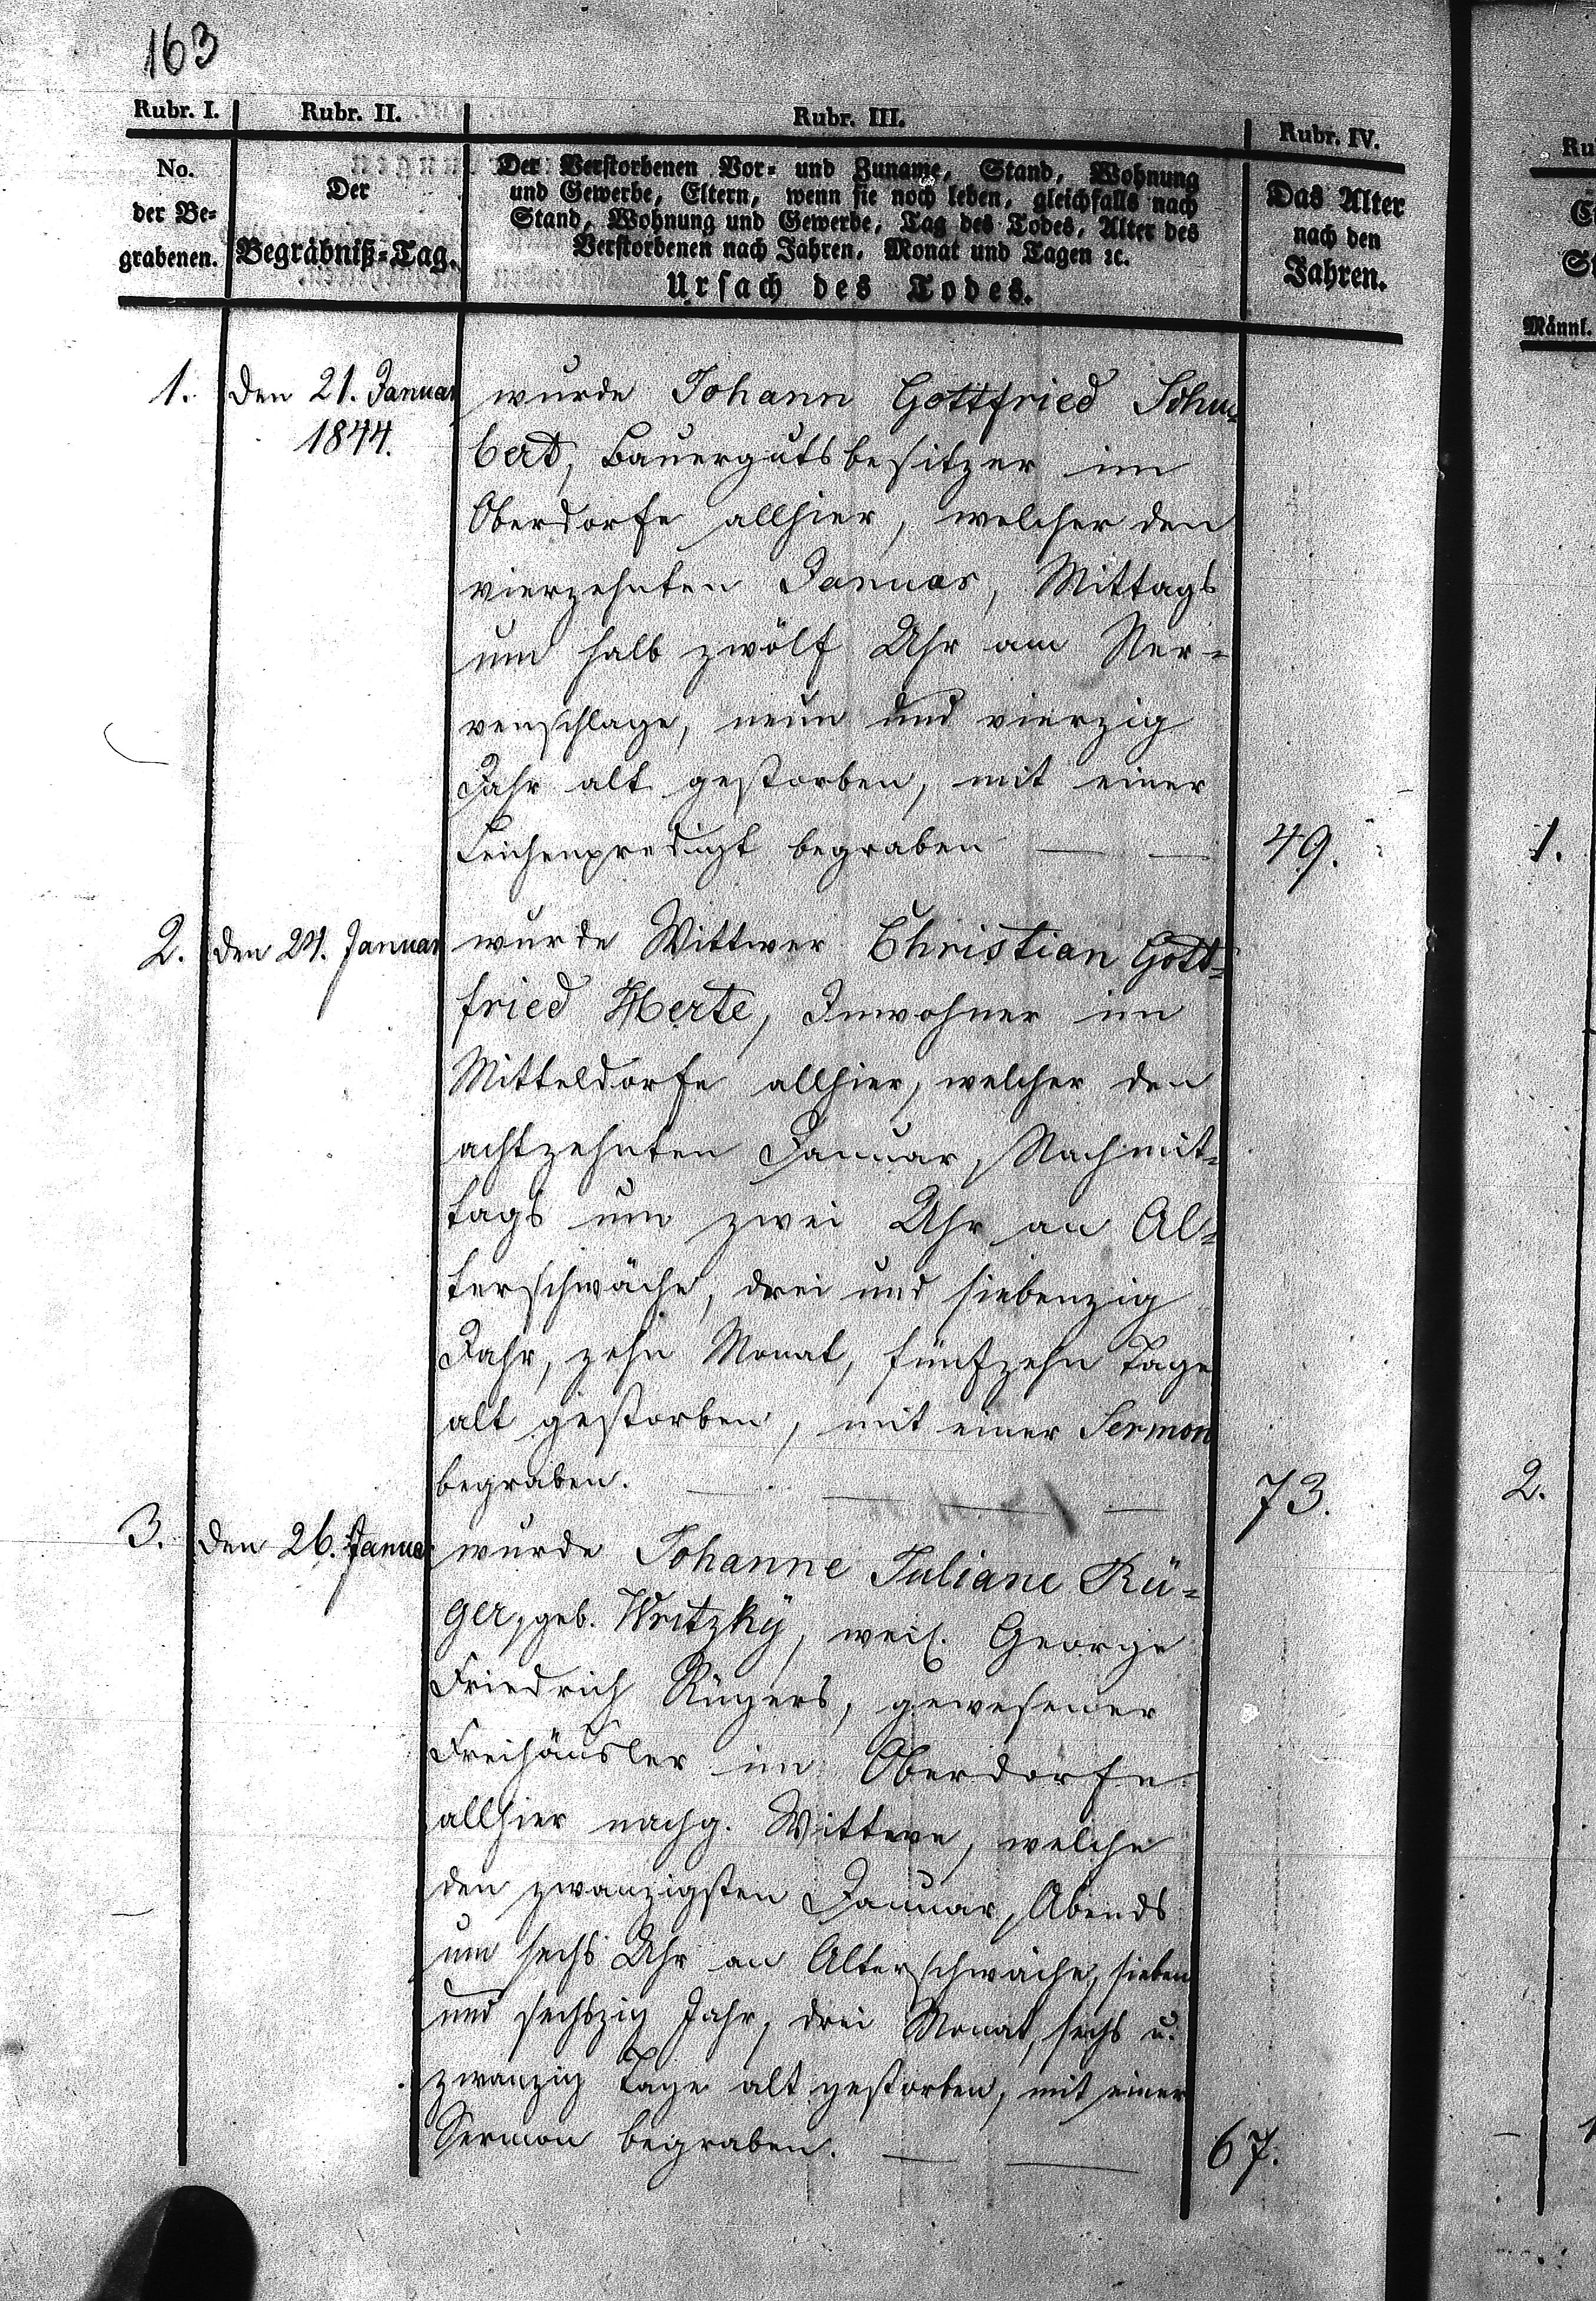 163
Rubr. I. Rubr. II. Rubr. III. Rubr. IV.
No.
der Be-
grabenen.
Der
Begräbniß-Tag.
Der Verstorbenen Vor- und Zuname, Stand, Wohnung
und Gewerbe, Eltern, wenn sie noch leben, gleichfalls nach
Stand, Wohnung und Gewerbe, Tag des Todes, Alter des
Verstorbenen nach Jahren, Monat und Tagen ꝛc.
Ursach des Todes.
Das Alter
nach den
Jahren.
Männl.
1. den 21. Januar
1844.
wurde Johann Gottfried Schu-
bert, Bauergutsbesitzer im
Oberdorfe allhier, welcher den
vierzehnten Januar, Mittags
um halb zwölf Uhr am Ner-
venschlage, neun und vierzig
Jahr alt gestorben, mit einer
Leichenpredigt begraben — — 49. 1.
2. den 24. Januar wurde Wittwer Christian Gott-
fried Herte, Inwohner im
Mitteldorfe allhier, welcher den
achtzehnten Januar, Nachmit-
tags um zwei Uhr an Al-
terschwäche, drei und siebenzig
Jahr, zehn Monat, fünfzehn Tage
alt gestorben, mit einer Sermon
begraben. — — — — 73. 2.
3. den 26. Januar wurde Johanne Juliane Rü-
ger, geb. Writzky, weil. George
Friedrich Rügers, gewesener
Freihäusler im Oberdorfe
allhier nachg. Wittwe, welche
den zwanzigsten Januar, Abends
um sechs Uhr an Alterschwäche, sieben
und sechszig Jahr, drei Monat, sechs u.
zwanzig Tage alt gestorben, mit einer
Sermon begraben. — — 67.